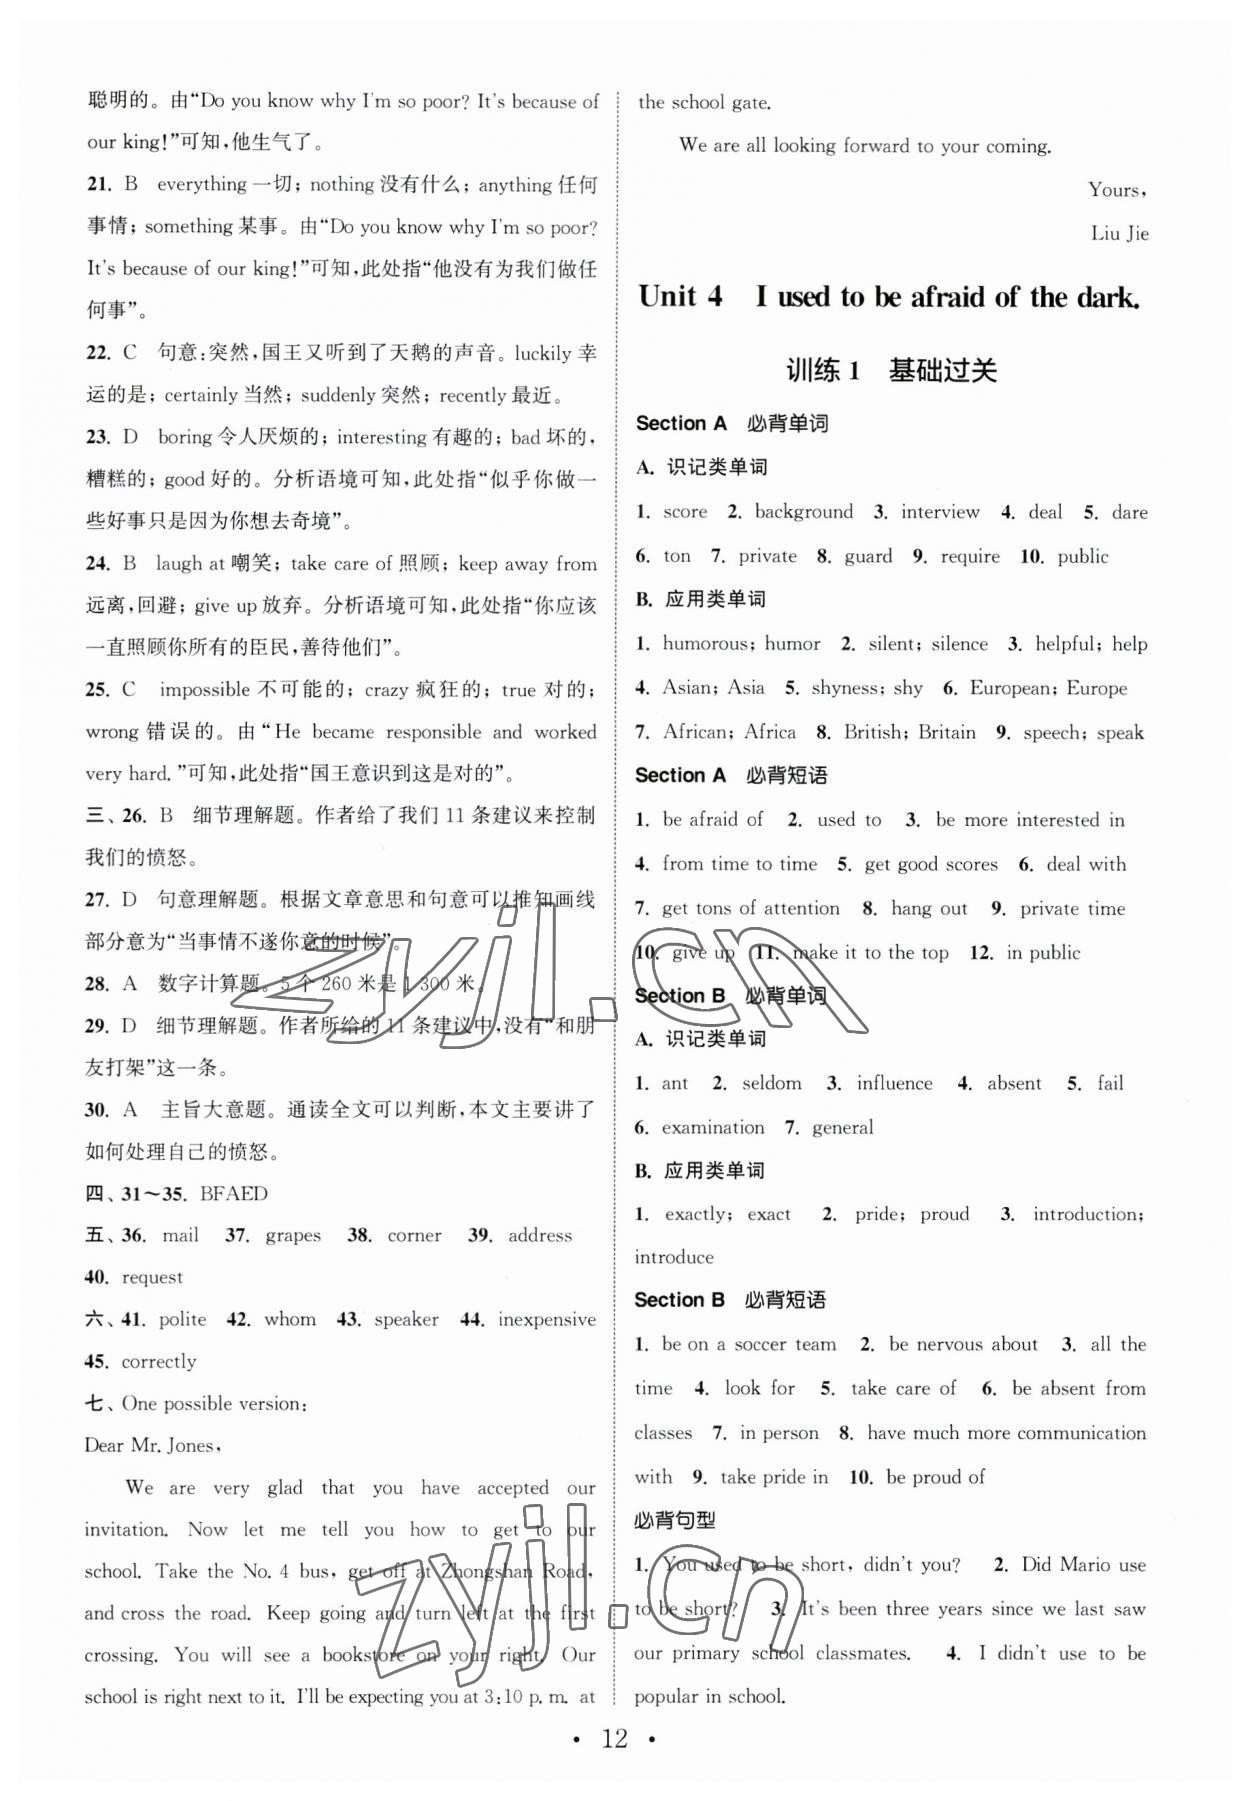 聪明的。由“Do you know why I'm so poor? It's because of
our king!”可知,他生气了。
21. B everything 一切; nothing 没有什么; anything 任何
事情; something 某事。由“Do you know why I'm so poor?
It's because of our king!”可知,此处指“他没有为我们做任
何事”。
22. C 句意:突然,国王又听到了天鹅的声音。luckily 幸
运的是; certainly 当然; suddenly 突然; recently 最近。
23. D boring 令人厌烦的; interesting 有趣的; bad 坏的,
糟糕的; good 好的。分析语境可知,此处指“似乎你做一
些好事只是因为你想去奇境”。
24. B laugh at 嘲笑; take care of 照顾; keep away from
远离,回避; give up 放弃。分析语境可知,此处指“你应该
一直照顾你所有的臣民,善待他们”。
25. C impossible 不可能的; crazy 疯狂的; true 对的;
wrong 错误的。由“He became responsible and worked
very hard.”可知,此处指“国王意识到这是对的”。
三、26. B 细节理解题。作者给了我们 11 条建议来控制
我们的愤怒。
27. D 句意理解题。根据文章意思和句意可以推知画线
部分意为“当事情不遂你意的时候”。
28. A 数字计算题。5 个 260 米是 1 300 米。
29. D 细节理解题。作者所给的 11 条建议中,没有“和朋
友打架”这一条。
30. A 主旨大意题。通读全文可以判断,本文主要讲了
如何处理自己的愤怒。
四、31~35. BFAED
五、36. mail 37. grapes 38. corner 39. address
40. request
六、41. polite 42. whom 43. speaker 44. inexpensive
45. correctly
七、One possible version:
Dear Mr. Jones,
We are very glad that you have accepted our
invitation. Now let me tell you how to get to our
school. Take the No. 4 bus, get off at Zhongshan Road,
and cross the road. Keep going and turn left at the first
crossing. You will see a bookstore on your right. Our
school is right next to it. I'll be expecting you at 3:10 p. m. at
the school gate.
We are all looking forward to your coming.
Yours,
Liu Jie
Unit 4 I used to be afraid of the dark.
训练 1 基础过关
Section A 必背单词
A. 识记类单词
1. score 2. background 3. interview 4. deal 5. dare
6. ton 7. private 8. guard 9. require 10. public
B. 应用类单词
1. humorous; humor 2. silent; silence 3. helpful; help
4. Asian; Asia 5. shyness; shy 6. European; Europe
7. African; Africa 8. British; Britain 9. speech; speak
Section A 必背短语
1. be afraid of 2. used to 3. be more interested in
4. from time to time 5. get good scores 6. deal with
7. get tons of attention 8. hang out 9. private time
10. give up 11. make it to the top 12. in public
Section B 必背单词
A. 识记类单词
1. ant 2. seldom 3. influence 4. absent 5. fail
6. examination 7. general
B. 应用类单词
1. exactly; exact 2. pride; proud 3. introduction;
introduce
Section B 必背短语
1. be on a soccer team 2. be nervous about 3. all the
time 4. look for 5. take care of 6. be absent from
classes 7. in person 8. have much more communication
with 9. take pride in 10. be proud of
必背句型
1. You used to be short, didn't you? 2. Did Mario use
to be short? 3. It's been three years since we last saw
our primary school classmates. 4. I didn't use to be
popular in school.
zyjl.cn
zyjl.cn
• 12 •